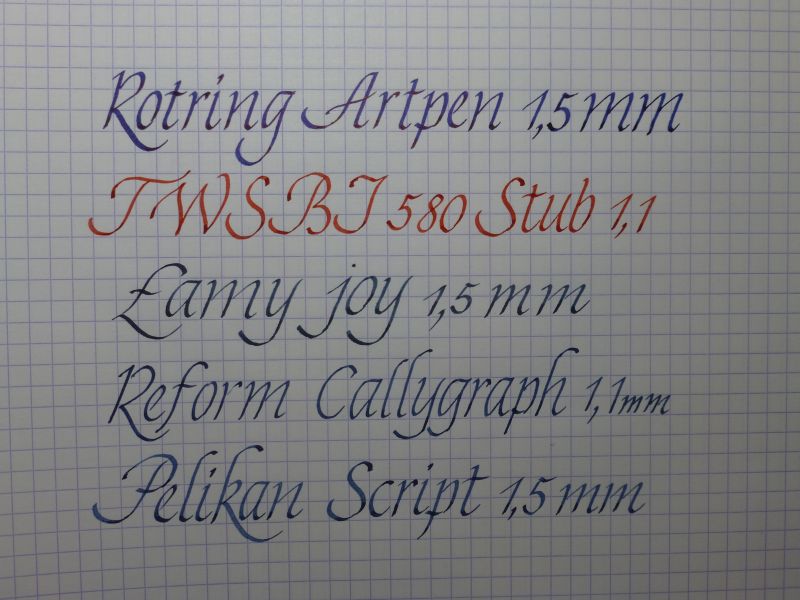 Rotring Artpen 1,5 mm
TWSBI 580 Stub 1,1
Lamy joy 1,5 mm
Reform Callygraph 1,1mm
Pelikan Script 1,5 mm